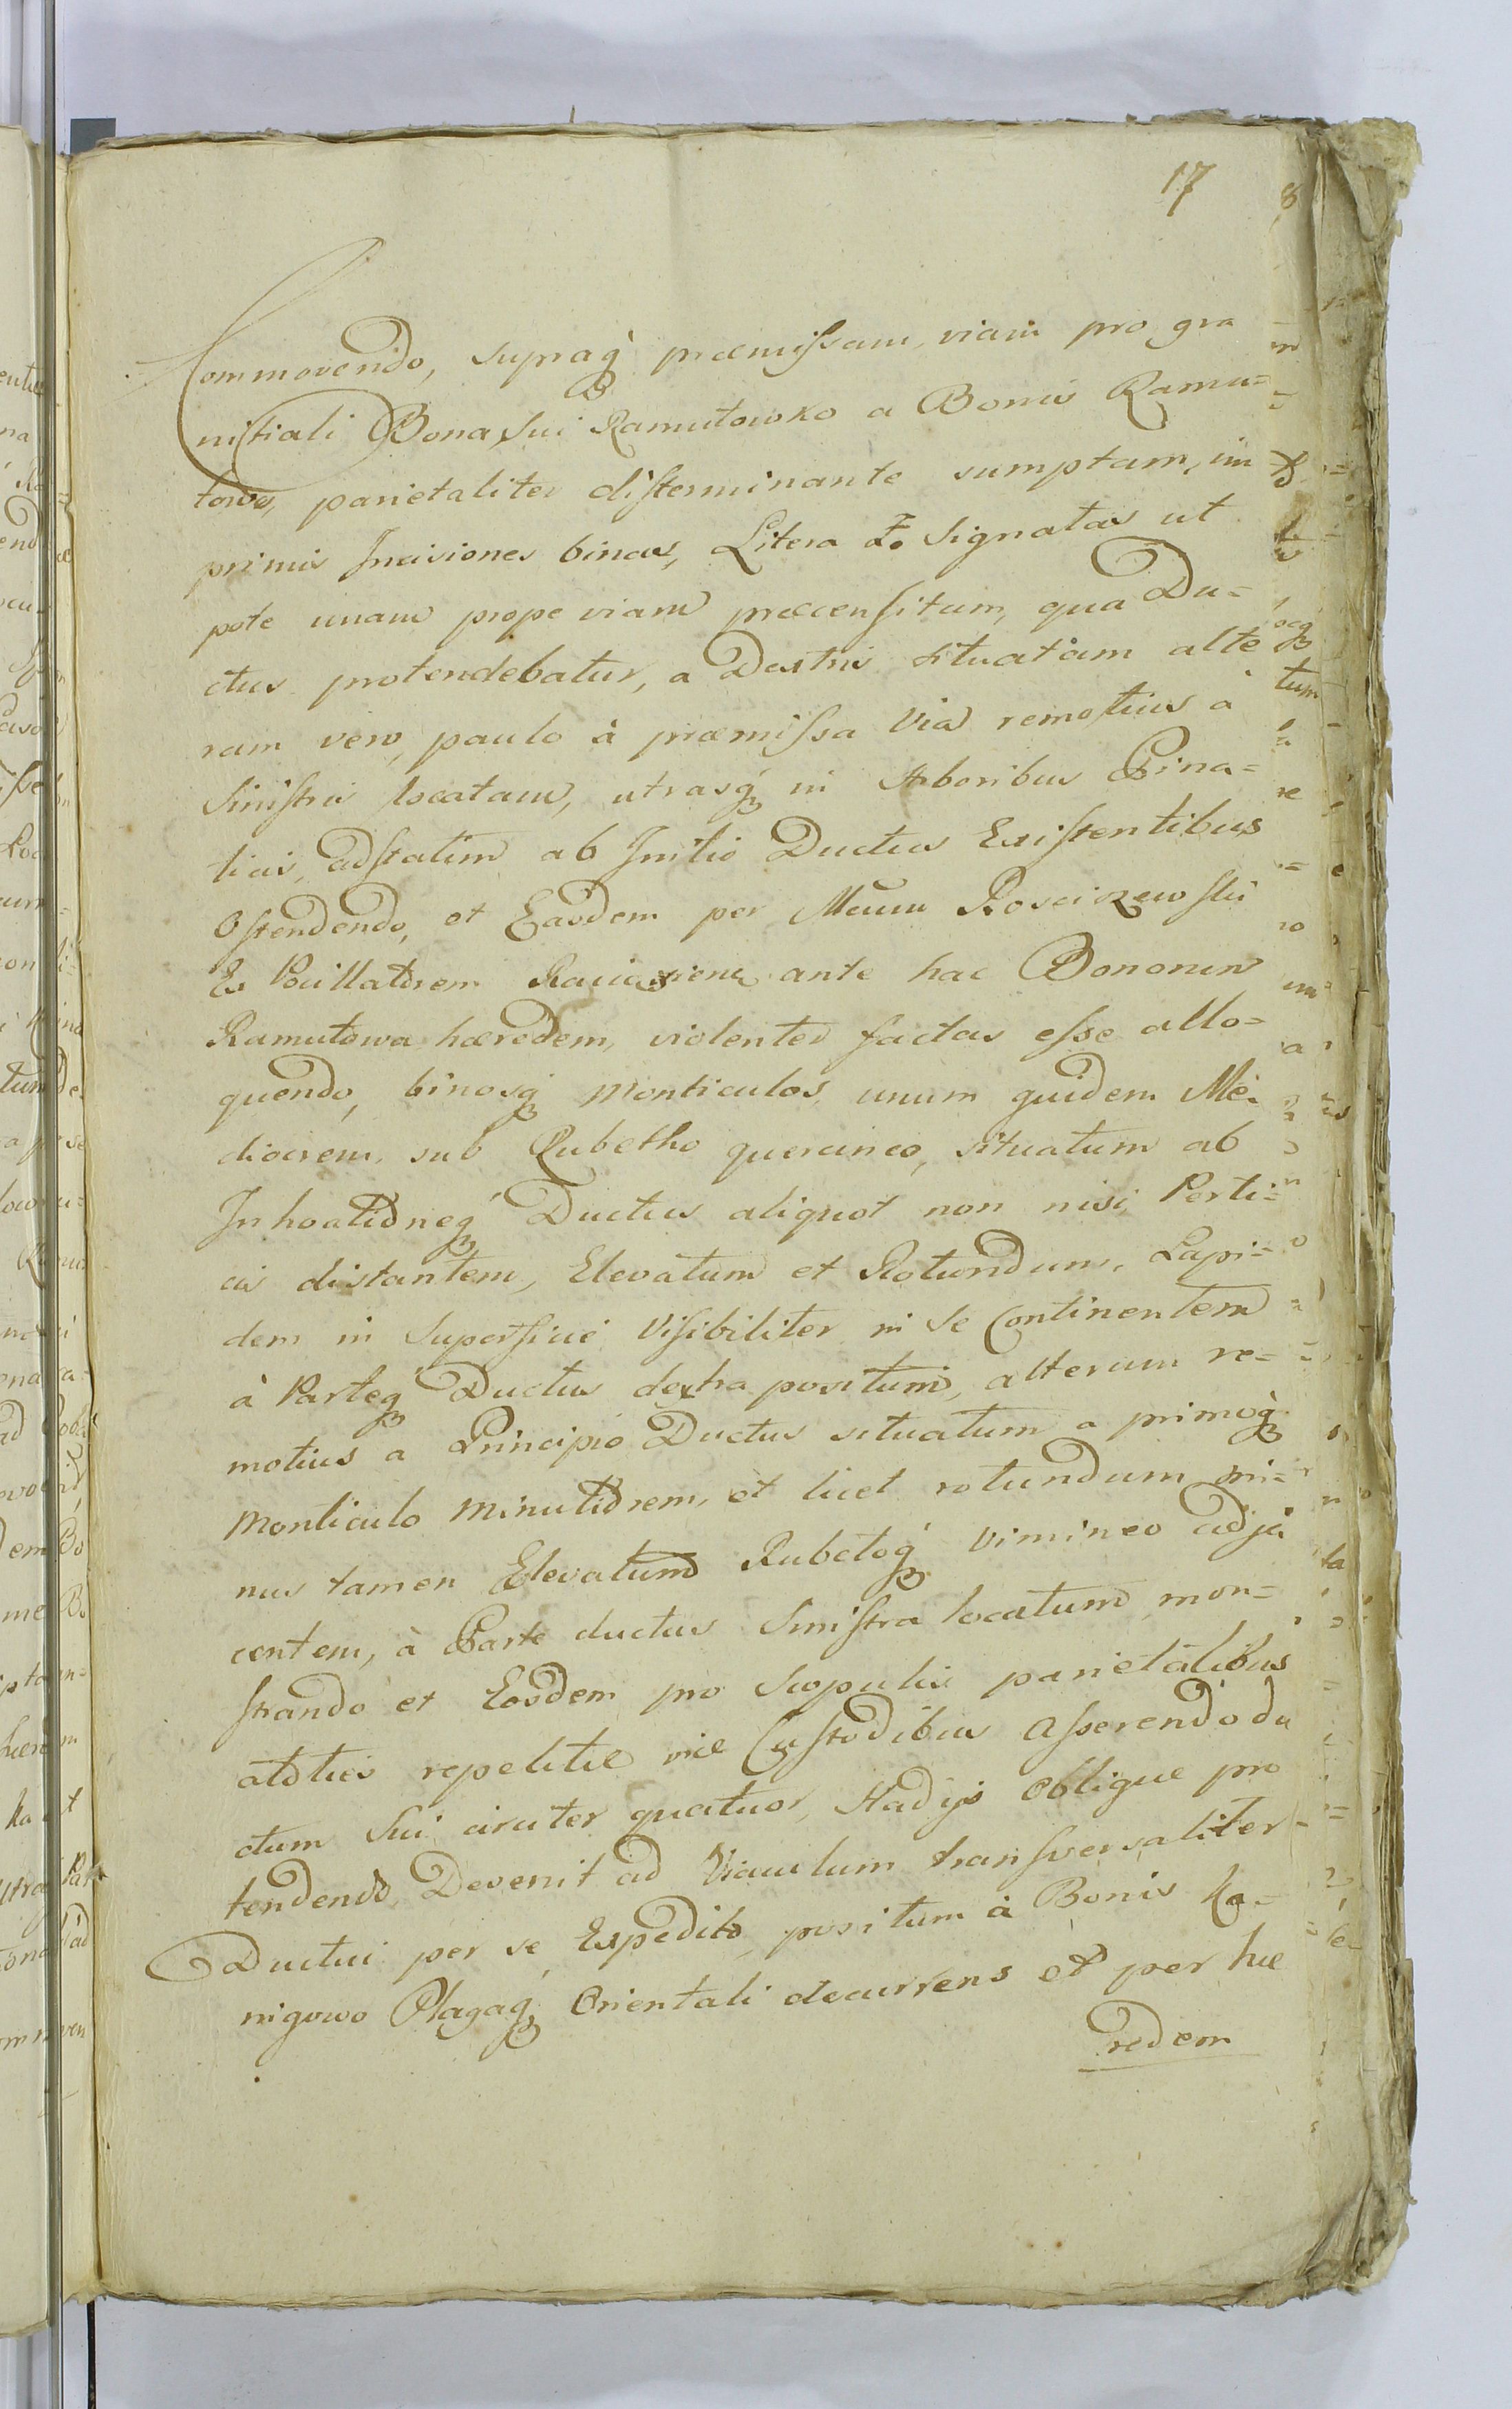 17
Commovendo, supraq́ praemissam viam pro gra
nitiali Bona sui Ramutowko a Bonis Ramu=
towo, parietaliter disterminante sumptam, im
primis Incisiones binas, Litera Z. Signatas ut
pote unam prope viam praecensitam, qua Du=
ctus protendebatur, a Dextris situatam alte
ram vero, paulo à praemissa Via remotius à
Sinistris locatam, utrasq́ in Arboribus Pina=
tiis, adstatim ab Initio Ductus Existentibus
Ostendendo, et Easdem per Mcum Rosciszewski
Ex Pocillatorem ante hac Bonorum
Ramutowa haeredem, violenter factas esse allo=
quendo, binosq́ Monticulos unum quidem Me=
diocrem sub Rubetho quercineo, situatum ab
Inhoationeq́ Ductus aliquot non nisi Perti=
cis distantem, Elevatum et Rotundum, Lapi=
dem in Superficie Visibiliter in se Continentem
à Parteq́ Ductus dextra positum, alterum re=
motius a Principio Ductus situatum a primoq́
Monticulo Minutiorem, et licet rotundum mi=
nus tamen Elevatum Rubetoq́ Vimineo adja
centem, à Parte ductus Sinistra locatum mon=
strando et Eosdem pro Scopulis parietalibus
atoties repetitae vice Custodibus Asserendo du
ctum Sui circiter quatuor Stadijs oblique pro
tendendo Devenit ad Viaculum transversaliter
Ductui per se Expedito positum à Bonis Ko=
nigowo Plagaq́ Orientali decurrens et per hae
redem